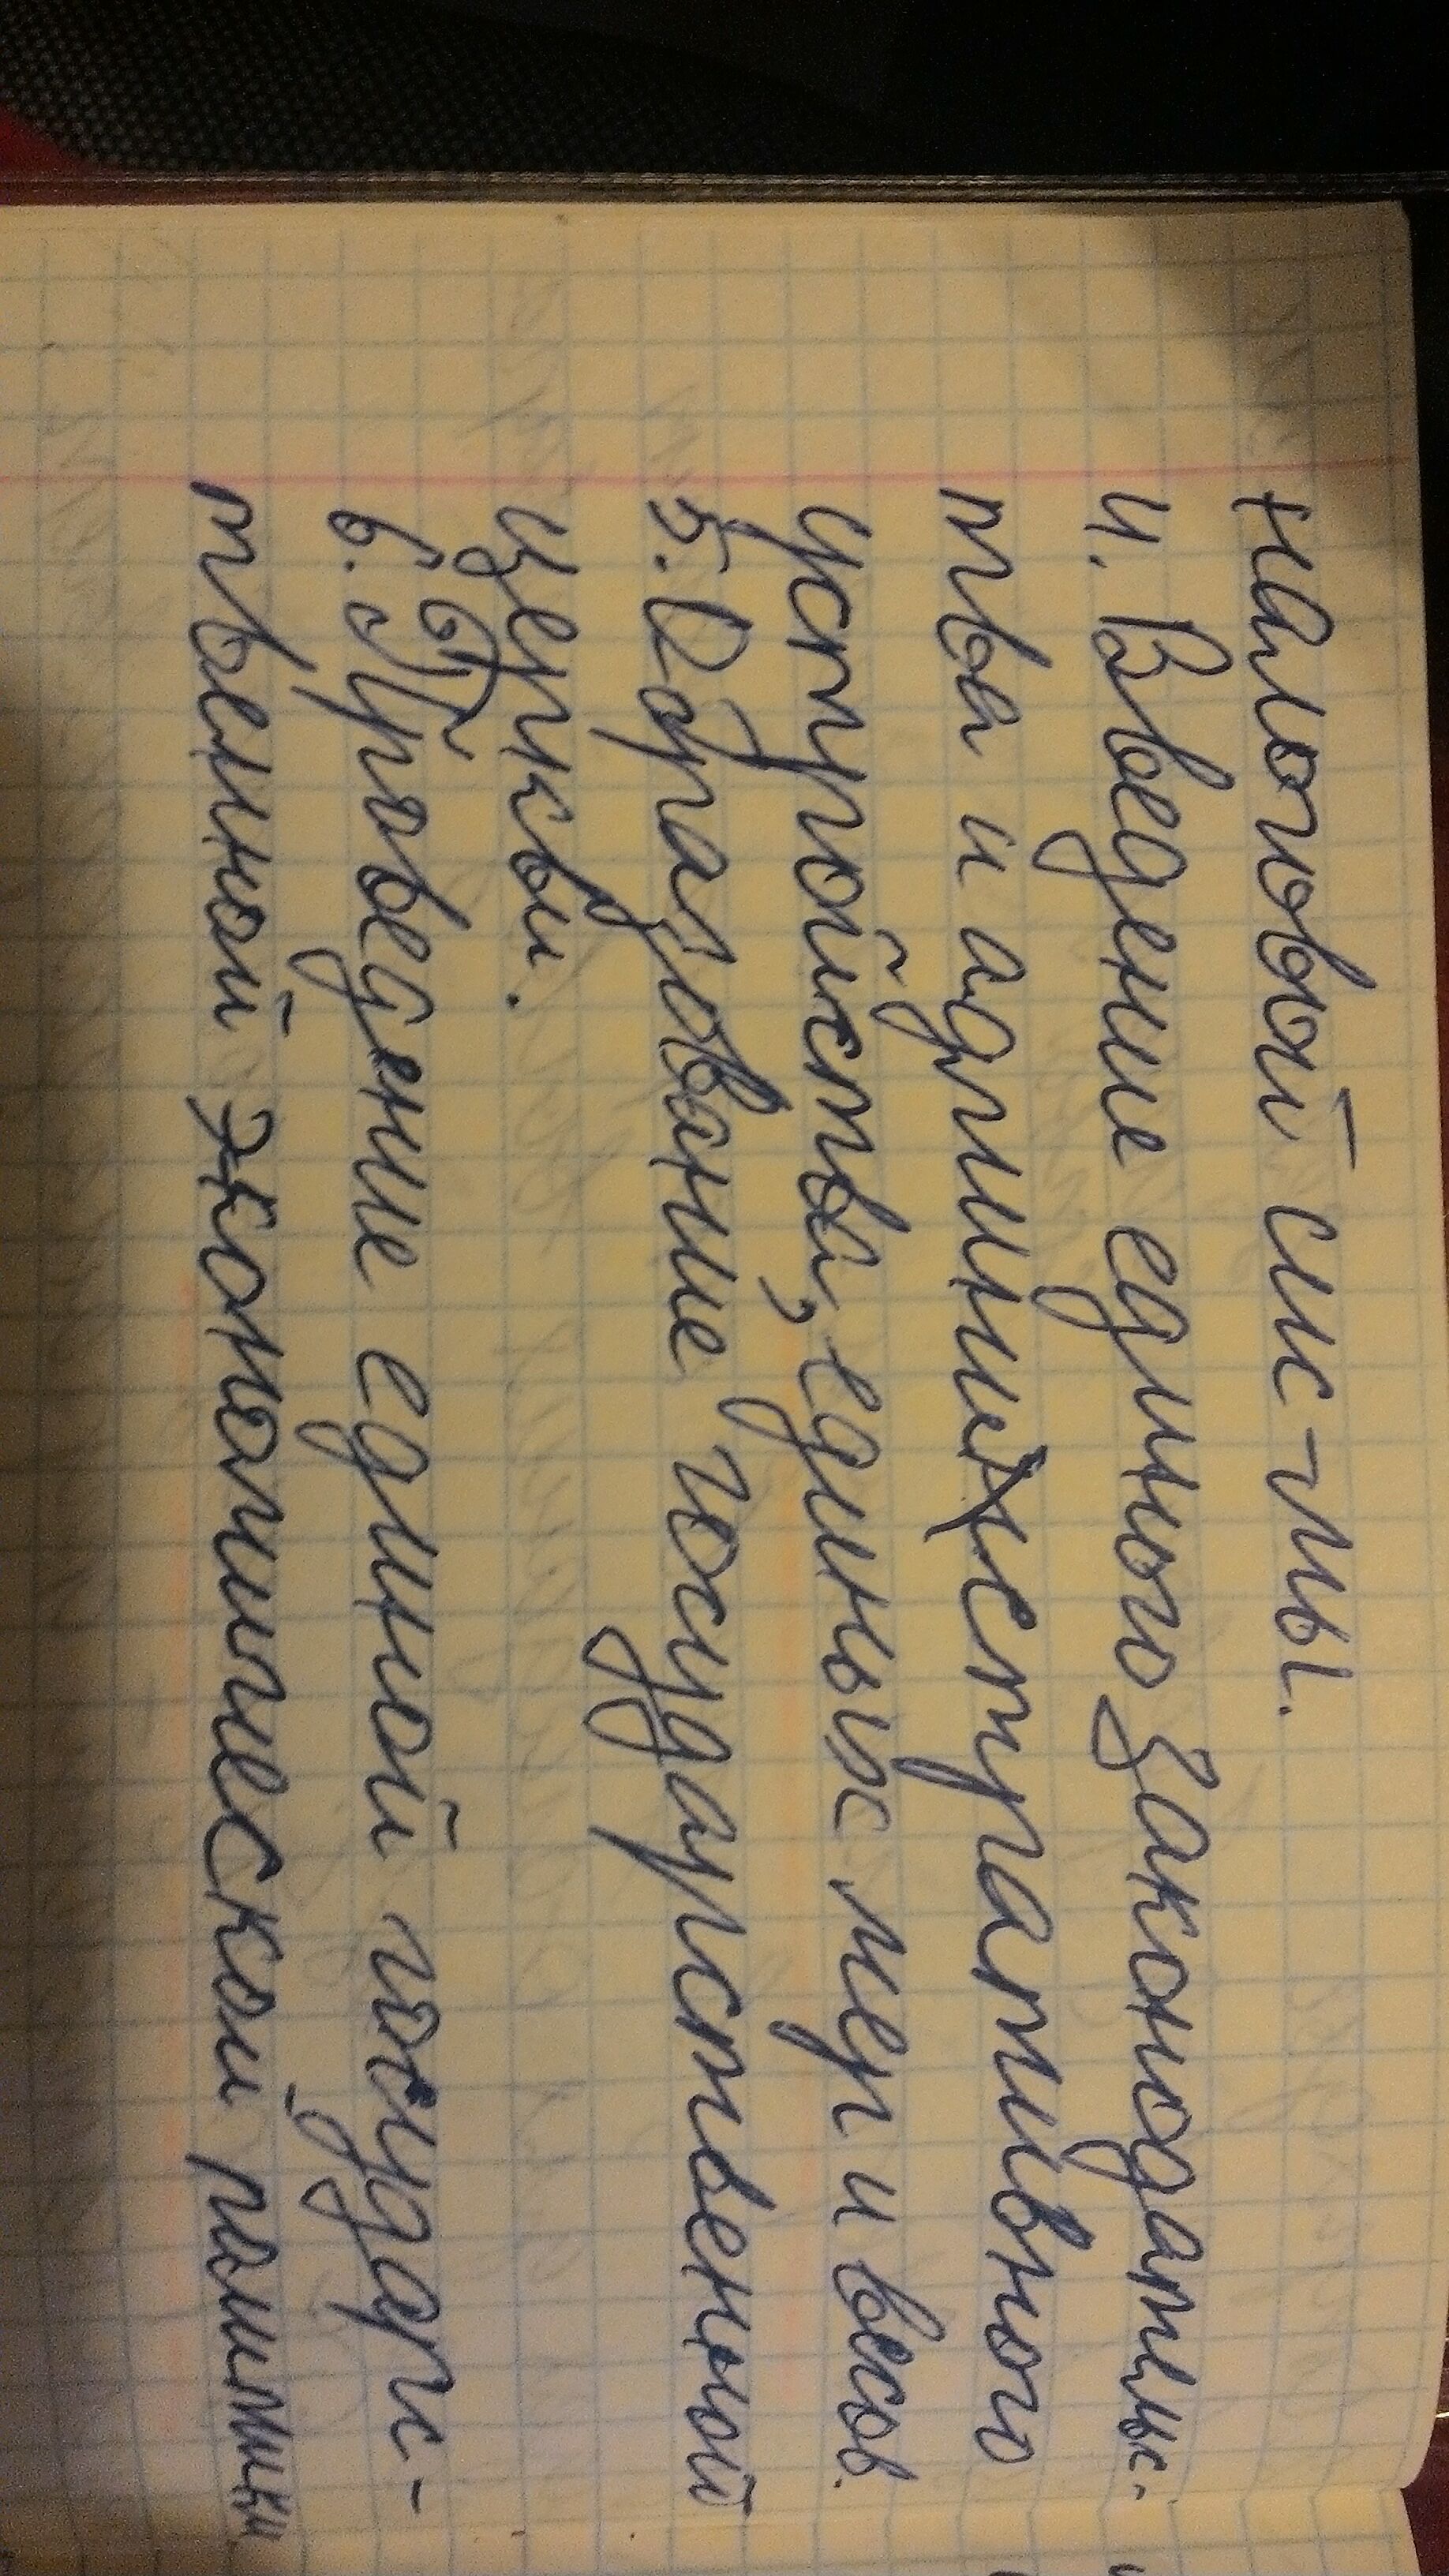 налоговой сис-мы.
4. Введение единого законодательс-
тва и административного
устройства, единых мер и весов.
5. Образование государственной
церкви.
6. Проведение единой государс-
твенной экономической политики